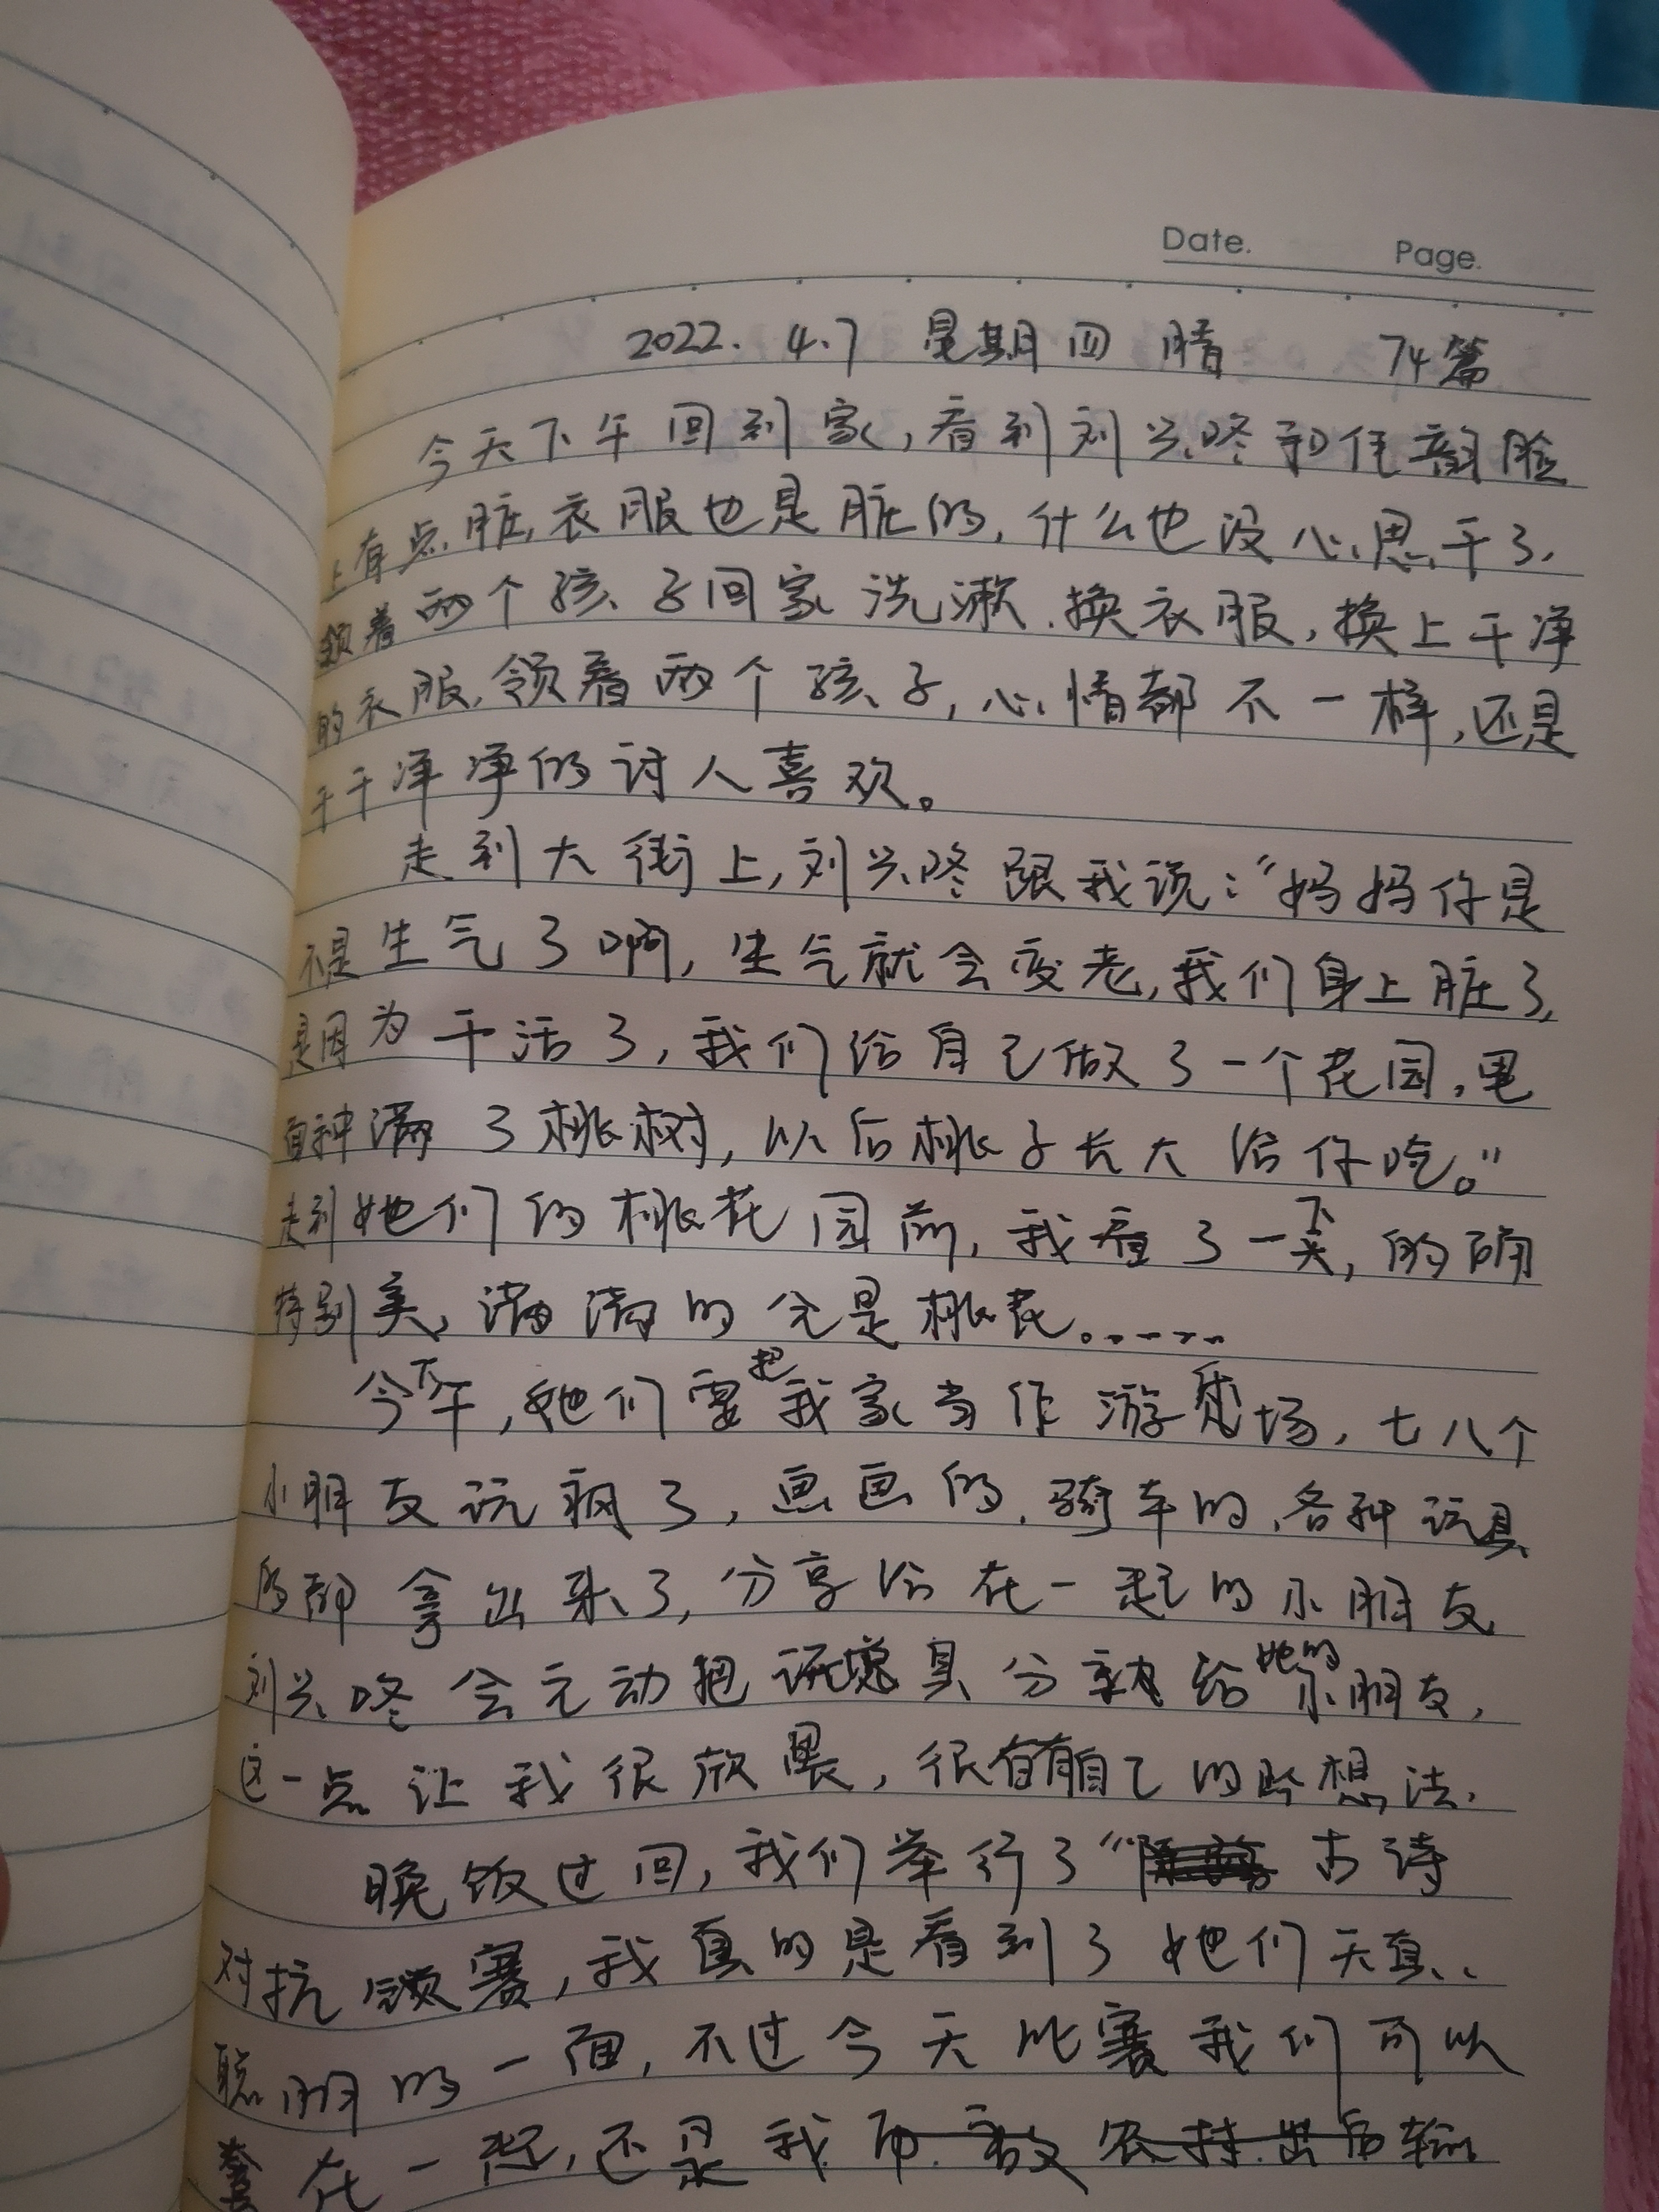 Date. Page.
2022. 4.7 星期四 晴 74篇
今天下午回到家,看到刘兴咚和佳韵脸
上有点脏,衣服也是脏的,什么也没心思干了,
领着两个孩子回家洗漱.换衣服,换上干净
的衣服,领着两个孩子,心情都不一样,还是
干干净净的讨人喜欢。
走到大街上,刘兴咚跟我说:“妈妈你是
不是生气了啊,生气就会变老,我们身上脏了,
是因为干活了,我们给自己做了一个花园,里
面种满了桃树,以后桃子长大给你吃。”
走到她们的桃花园前,我看了一下,的确
特别美,满满的全是桃花。.....
今下午,她们要把我家当作游乐场,七八个
小朋友玩疯了,画画的,骑车的,各种玩具
的都拿出来了,分享给在一起的小朋友
刘兴咚会主动把玩具分享给她的小朋友,
这一点让我很欣慰,很有自己的想法.
晚饭过回,我们举行了“古诗
对抗赛,我真的是看到了她们天真、
聪明的一面,不过今天比赛我们可以
在一起,还是我